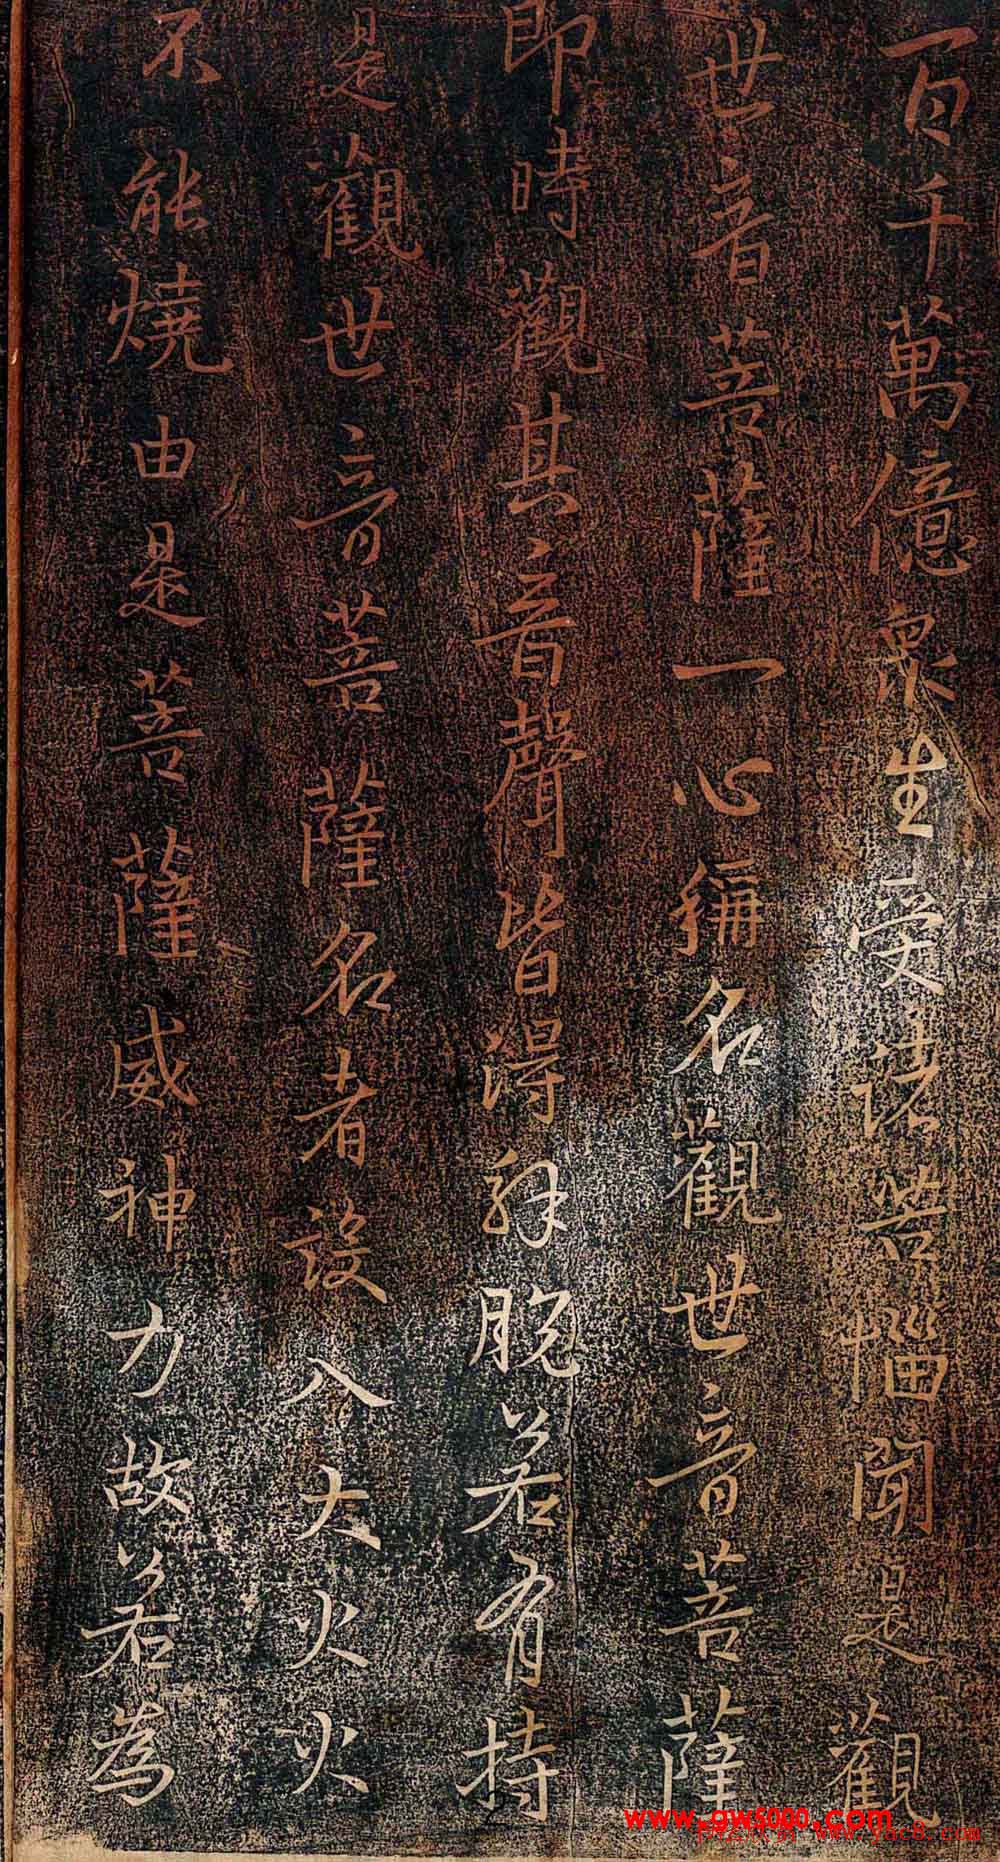 百千萬億眾生受諸苦惱聞是觀
世音菩薩一心稱名觀世音菩薩
即時觀其音聲皆得解脫若有持
是觀世音菩薩名者設入大火火
不能燒由是菩薩威神力故若為
www.gw5000.com
www.yac8.com